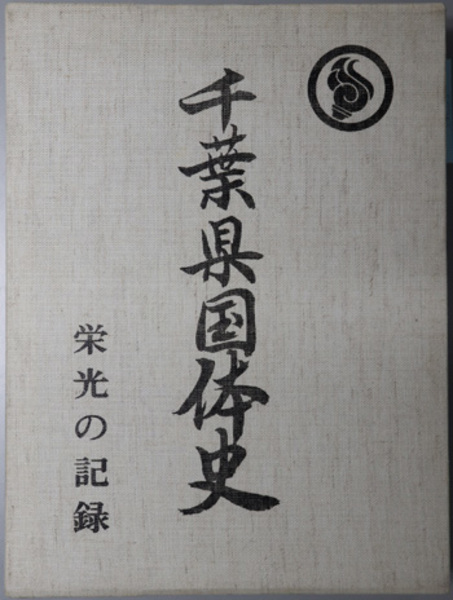 千葉県国体史
栄光の記録